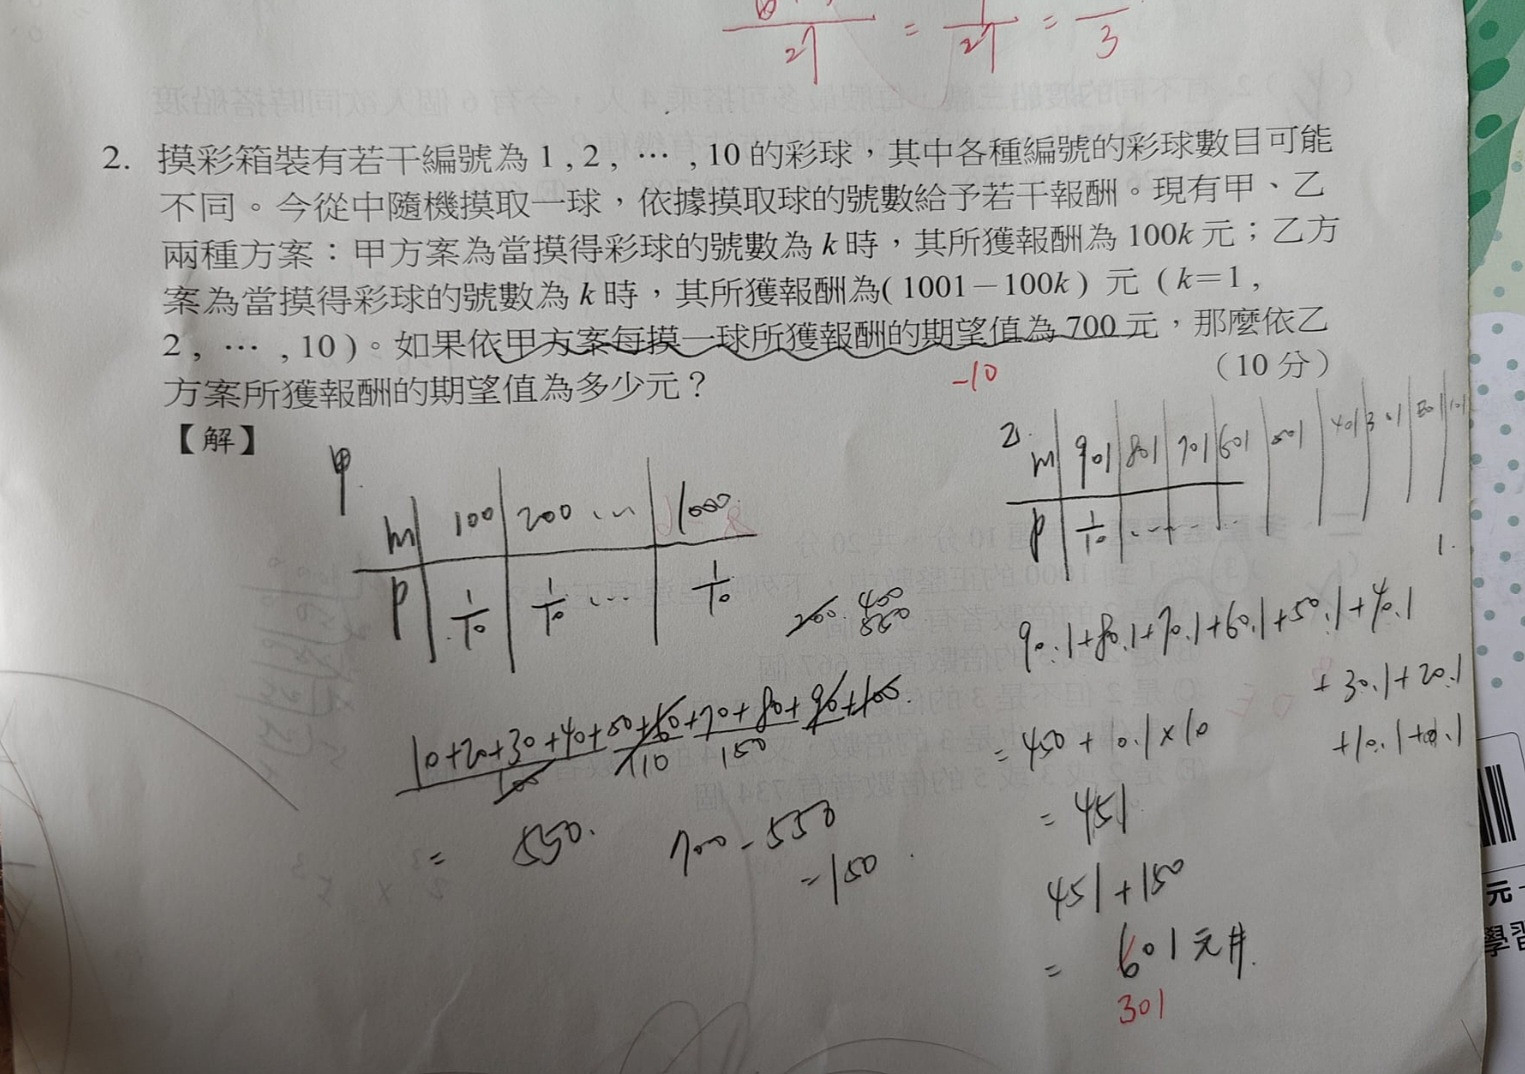 27 = 27 = 3
2. 摸彩箱裝有若干編號為 1 , 2 , … , 10 的彩球，其中各種編號的彩球數目可能
不同。今從中隨機摸取一球，依據摸取球的號數給予若干報酬。現有甲、乙
兩種方案：甲方案為當摸得彩球的號數為 k 時，其所獲報酬為 100k 元；乙方
案為當摸得彩球的號數為 k 時，其所獲報酬為( 1001－100k ) 元 ( k＝1 ,
2 , … , 10 )。如果依甲方案每摸一球所獲報酬的期望值為 700 元，那麼依乙
方案所獲報酬的期望值為多少元？ （10 分）
-10
【解】
甲.
m 100 200 … 1000
P 1/10 1/10 … 1/10
乙.
m 901 801 701 601 501 401 301 201 101 1
P 1/10 …
200. 400
550
10+20+30+40+50+60+70+80+90+100
100 110 150
= 550.
700-550
=150
90.1+80.1+70.1+60.1+50.1+40.1
+30.1+20.1
+10.1+0.1
= 450+0.1×10
= 451
451+150
= 601元#.
301
元
學習